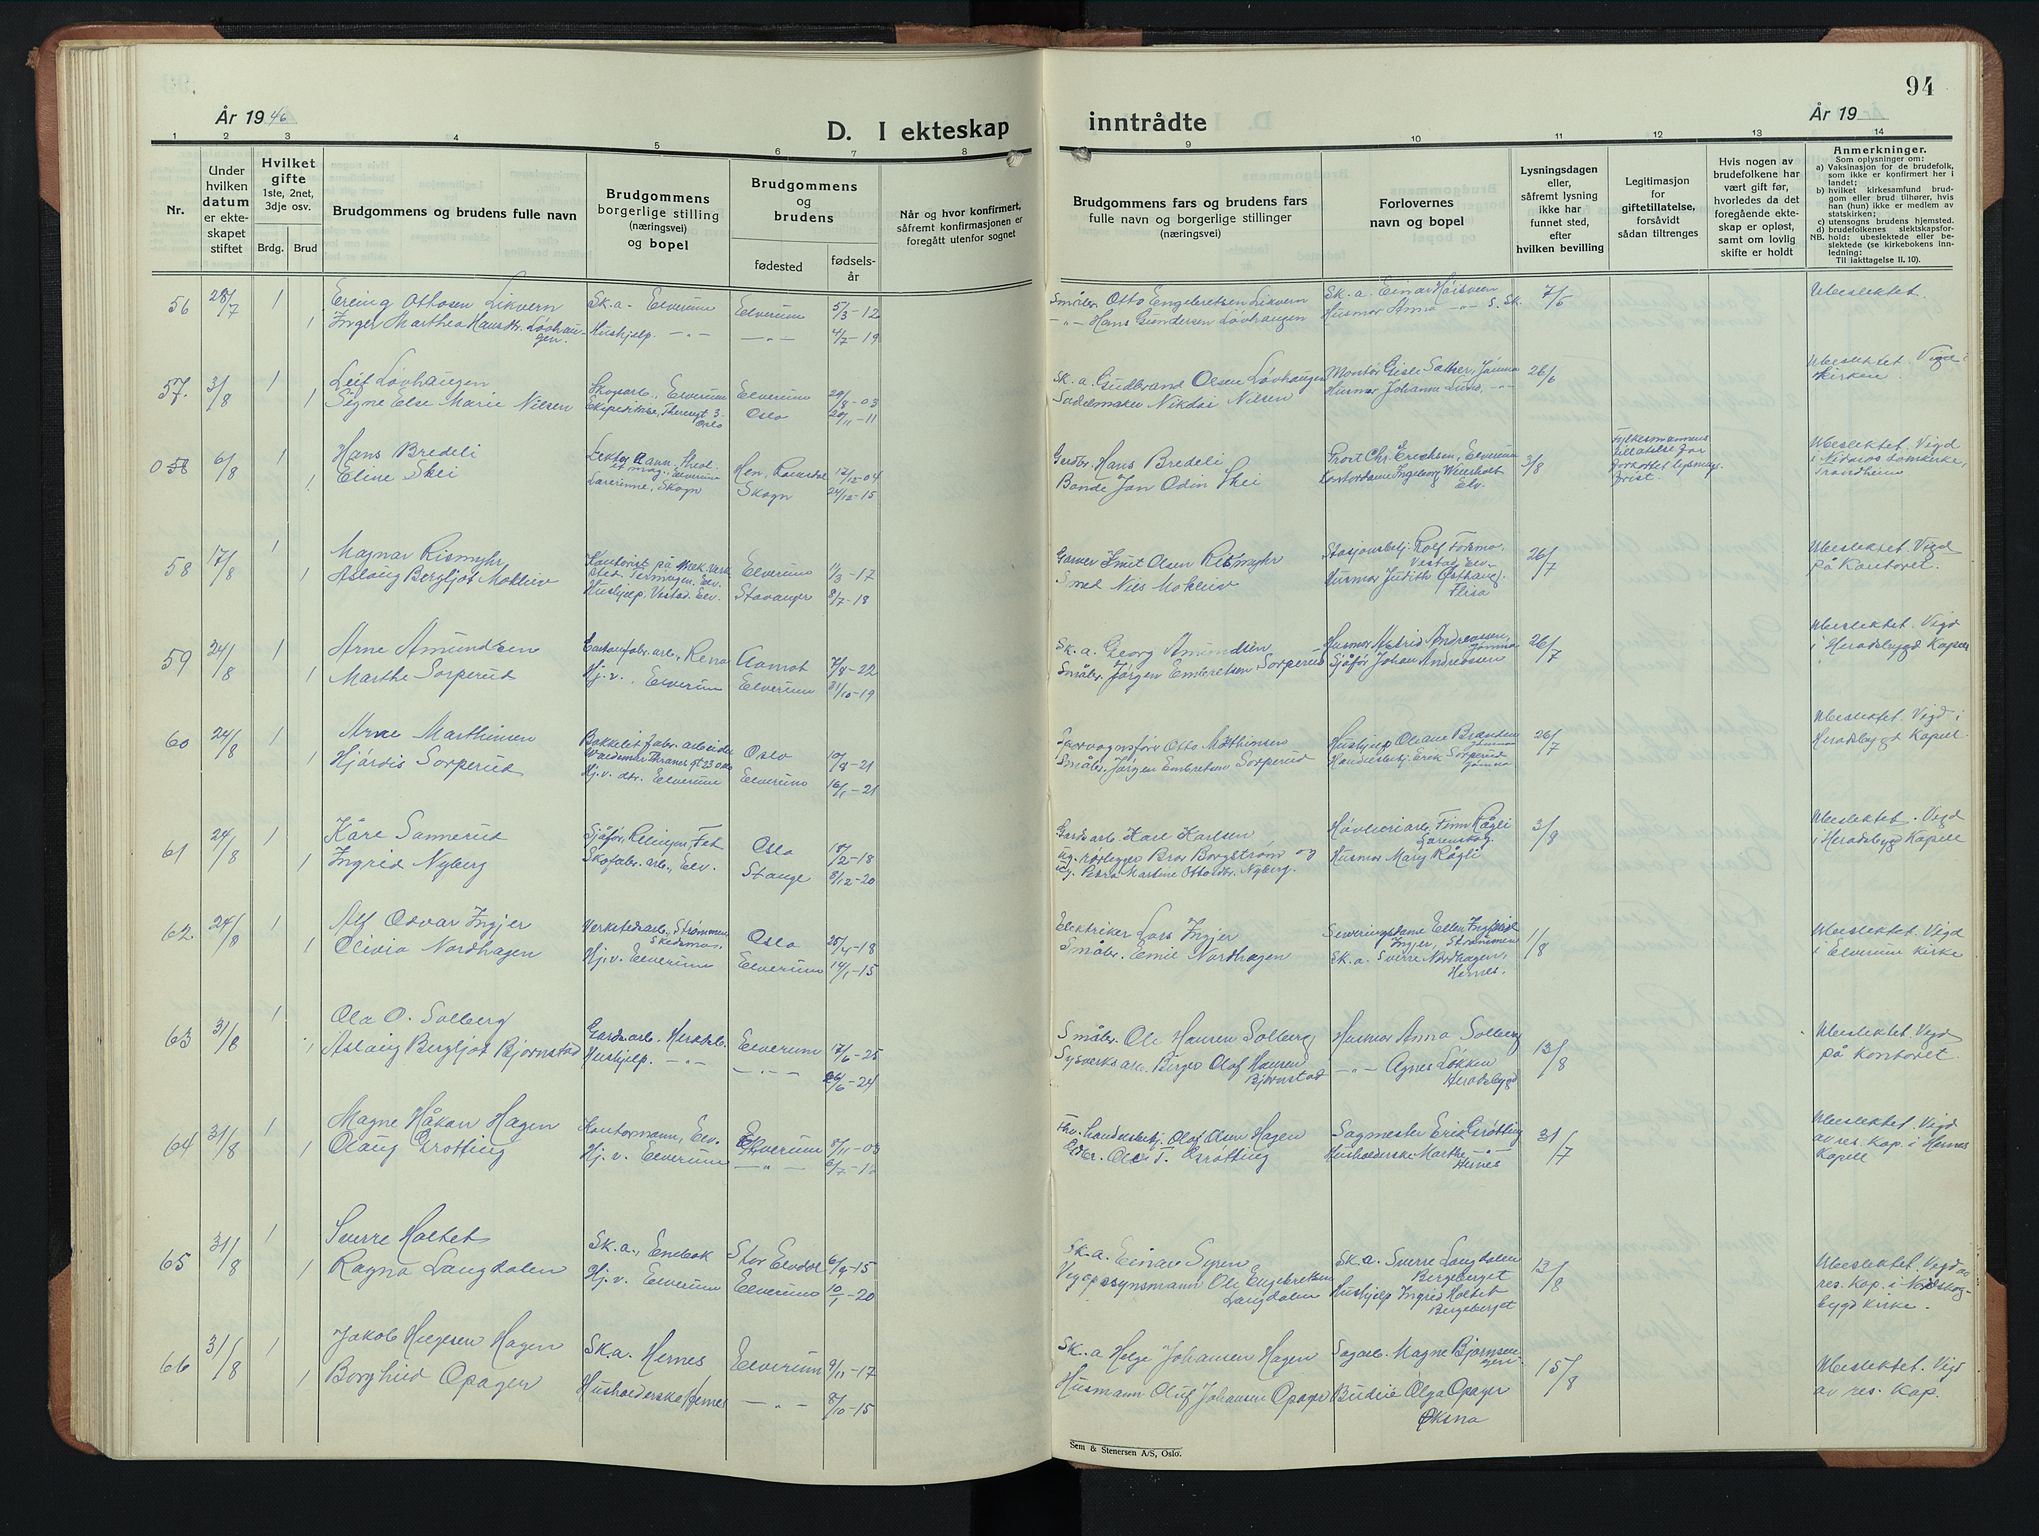 94
År 1946
År 19
D. I ekteskap inntrådte
1 2 3 4 5 6 7 8 9 10 11 12 13 14
Nr.
Under hvilken datum er ekteskapet stiftet
Hvilket gifte 1ste, 2net, 3dje osv.
Brdg. Brud
Brudgommens og brudens fulle navn
Brudgommens borgerlige stilling (næringsvei) og bopel
Brudgommens og brudens
fødested
fødselsår
Når og hvor konfirmert, såfremt konfirmasjonen er foregått utenfor sognet
Brudgommens fars og brudens fars fulle navn og borgerlige stillinger (næringsvei)
Forlovernes navn og bopel
Lysningsdagen eller, såfremt lysning ikke har funnet sted, efter hvilken bevilling
Legitimasjon for giftetillatelse, forsåvidt sådan tiltrenges
Hvis nogen av brudefolkene har vært gift før, hvorledes da det foregående ekteskap er opløst, samt om lovlig skifte er holdt
Anmerkninger.
Som oplysninger om:
a) Vaksinasjon for de brudefolk, som ikke er konfirmert her i landet;
b) hvilket kirkesamfund brudgom eller brud tilhører, hvis han (hun) ikke er medlem av statskirken;
c) utensogns brudens hjemsted.
d) brudefolkenes slektskapsforhold: ubeslektede eller beslektede (se kirkebokens innledning:
NB. Til iakttagelse II. 10).
56 28/7 1 Erling Ottosen Likvern Sk.a. Elverum Elverum 5/3-12 Småbr. Otto Engebretsen Likvern Sk.a. Einar Hørsveen 7/6 Ubeslektet.
1 Inger Marthea Hansdtr. Løvhaugen. Hushjelp. -"- -"- 4/7-19 -"- Hans Gundersen Løvhaugen Husmor Anna -"- S.Sk.
57. 3/8 1 Leif Løvhaugen Skogsarb., Elverum Elverum 29/8-03 Sk.a. Gudbrand Olsen Løvhaugen Montør Gisle Sather, Jømna 26/6 Ubeslektet. Vigd i kirken
1 Signe Else Marie Nilsen Oslo Oslo 20/11-11 Sadelmaker Nikolai Nilsen Husmor Johanne Lund, -"-
058 6/8 1 Hans Bredeli Lektor Elverum Hen, Romsdal 12/12-04 Gardbr. Hans Bredeli Prost Chr. Erichsen, Elverum 3/8 Fylkesmannens tillatelse for forkortet lysningsfrist. Ubeslektet. Vigd i Nidaros Domkirke, Trondheim
1 Eline Skei Lærerinne, Skogn Skogn 24/12-15 Bonde Jon Odin Skei Ingeborg Weierholt Elv.
58 17/8 1 Magnar Rismyhr Kontorist på Mek. verksted. Elv. Elverum 11/3-17 Garver Knut Olsen Rismyhr Stasjonsbetj. Rolf Fosmo, Vestad Elv. 26/7 Ubeslektet. Vigd på Kontoret.
1 Aslaug Bergljot Mokleiv Hushjelp, Vestad. Elv. Stavanger 8/7-18 Smed Nils Mokleiv Husmor Judith Østhaug. Flisa
59 24/8 1 Arne Amundsen Cartonfabr.arb., Rena Aamot 7/8-22 Sk.a. Georg Amundsen Husmor Astrid Andreassen, Jømna 26/7 Ubeslektet. Vigd i Heradsbygd Kapell
1 Marthe Sorperud Hj.v., Elverum Elverum 31/10-19 Småbr. Jørgen Embretsen Sorperud Sjåfør Johan Andreassen
60 24/8 1 Arne Marthinsen Bakkelit fabr. arbeider Waldemar Thranes gt 23 Oslo Oslo 10/8-21 Sporvognsfører Otto Mathinsen Hushjelp Oliane Brænden Jømna 26/7 Ubeslektet. Vigd i Heradsbygd Kapell.
1 Hjørdis Sorperud Hj.v. dtr. Elverum Elverum 16/1-21 Småbr. Jørgen Embretsen Sorperud Handelsbetj. Erik Sorperud Jømna
61 24/8 1 Kåre Sannerud Sjåfør, Relingen, Fet Oslo 18/2-18 Gardsarb. Karl Karlsen Høvleriarb. Finn Kågli Lørenskog 3/8 Ubeslektet. Vigd i Heradsbygd Kapell
1 Ingrid Nyberg Skofabr. arb., Elv. Stange 8/12-20 ug. rørlegger Bror Borgstrøm og ug. Petra Martine Ottosdtr. Nyberg. Husmor Mary Kågli
62. 24/8 1 Alf Osvar Ingjer Verkstedarb., Strømmen Skedsmo. Oslo 25/4-18 Elektriker Lars Ingjer Serveringsdame Ellen Ingjer, Strømmen 11/8 Ubeslektet. Vigd i Elverum kirke
1 Olivia Nordhagen Hj.v. Elverum Elverum 14/1-15 Småbr. Emil Nordhagen Sk.a. Sverre Nordhagen, Hernes.
63 31/8 1 Ola O. Solberg Gardsarb. Elverum 17/6-25 Småbr. Ole Hansen Solberg Husmor Anna Solberg 13/8 Ubeslektet. Vigd på Kontoret.
1 Aslaug Bergljot Bjørnstad Hushjelp. -"- -"- 26/6-24 Birger Olaf Hansen Bjørnstad -"- Agnes Løkken Heradsbygd
64 31/8 1 Magne Håkon Hagen Kontormann, Elv. Elverum 8/11-03 Fhv. handelsbetj. Olaf Olsen Hagen Sagmester Erik Grøtting 31/7 Ubeslektet. Vigd av res. kap. i Hernes Kapell
1 Olaug Grøtting Hj.v. Elverum -"- 6/7-12 Gdbr. Ole T. Grøtting Husholderske Marthe -"- Hernes
65 31/8 1 Sverre Holtet Sk.a., Enebak Stor Elvdal 6/9-15 Sk.a. Einar Syren Sk.a. Sverre Langdalen Bergeberget 13/8 Ubeslektet. Vigd av res. kap. i Nordskogbygd kirke.
1 Ragna Langdalen Hj.v. Elverum Elverum 10/1-20 Vegoppsynsmann Ole Engebretsen Langdalen Hushjelp Ingrid Holtet Bergeberget
66 31/8 1 Jakob Helgesen Hagen Sk.a. Hernes Elverum 9/11-17 Sk.a Helge Johansen Hagen Sagarb. Magne Bjørnsengen. 15/8 Ubeslektet. Vigd av res. Kap.
1 Borghild Opager Husholderske Hernes -"- 8/10-15 Husmann Oluf Johansen Opager Budeie Olga Opager Øksna
Sem & Stenersen A/S, Oslo.